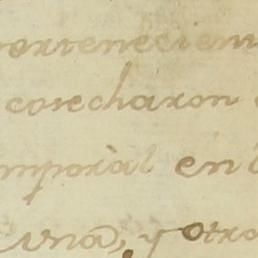 pertenecien
cosecharon
mporàl en
una, y otro